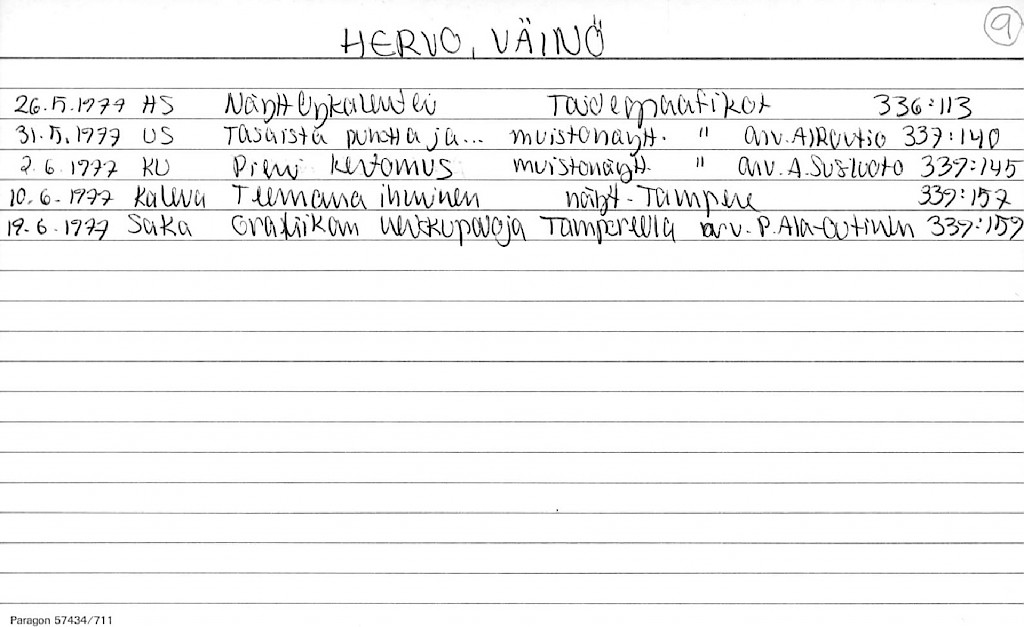 9
HERVO, VÄINÖ
26.5.1977 HS Näyttelykalenteri Taidegraafikot 336:113
31.5.1977 US Tasaista puhetta ja... muistonäytt. " arv. AIRoutio 339:140
2.6.1977 KU Pieni kertomus muistonäytt. " arv. A. Susiluoto 339:145
10.6.1977 Kaleva Teemana ihminen näytt. Tampere 339:157
19.6.1977 SaKa Grafiikan Tampereella arv. P. Ala-Outinen 339:159
Paragon 57434/711